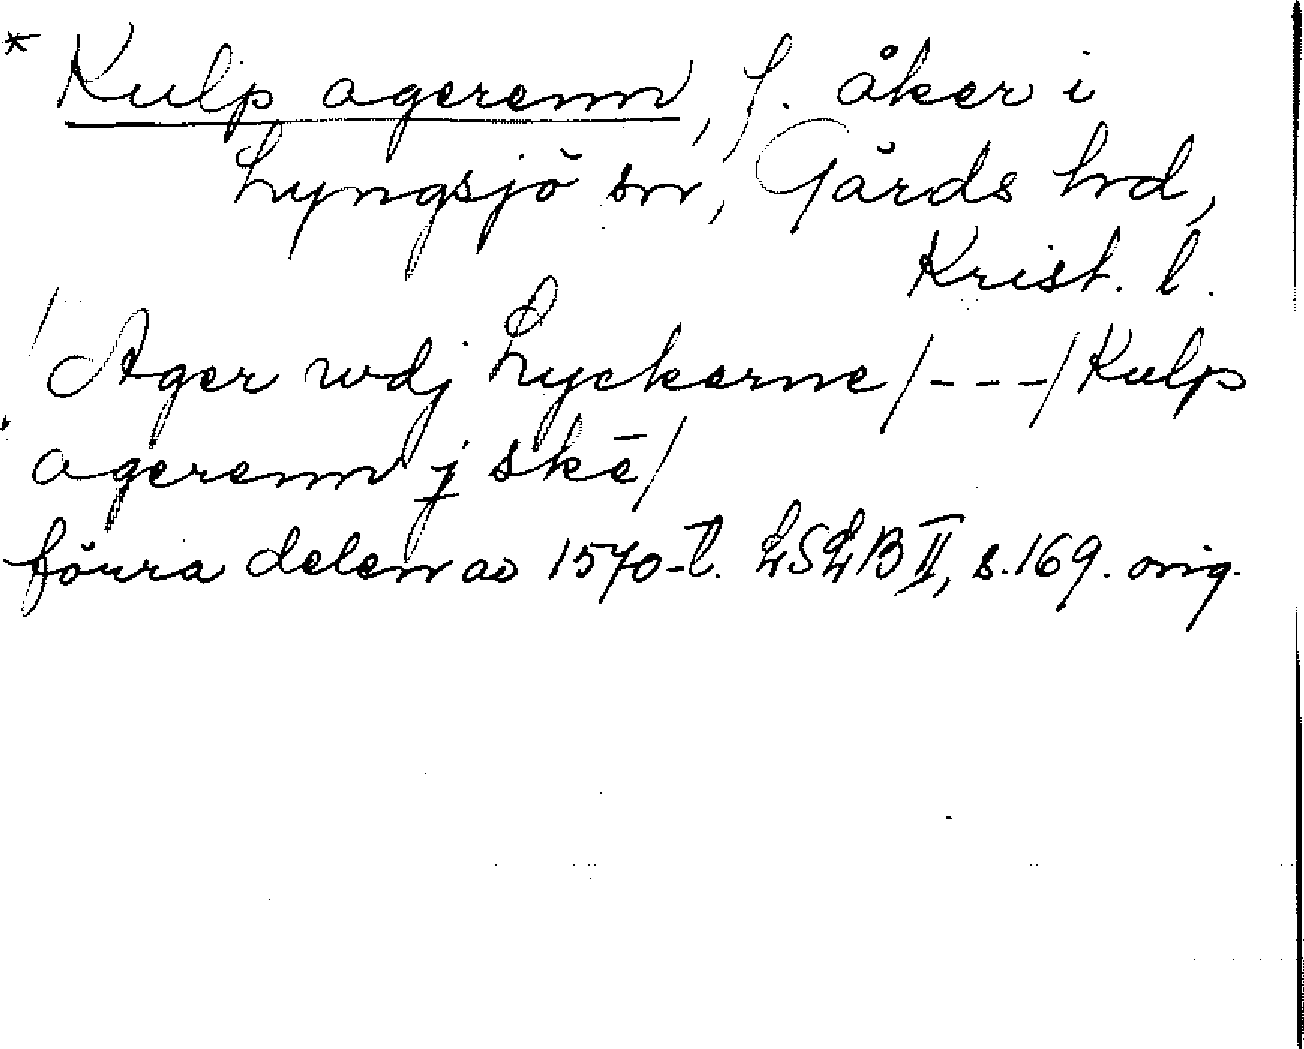 * Kulp agerenn, f. åker i
Lyngsjö sn, Gärds hd,
Krist. l.
/ Ager wdj Lyckerne/---/Kulp
agerenn j skē/
förra delen av 1570-t. LSLB II, s. 169. orig.